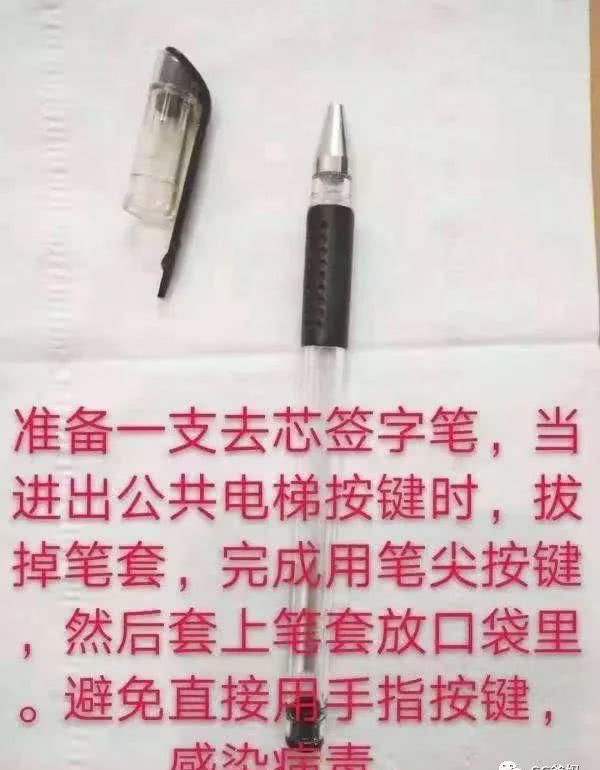 准备一支去芯签字笔，当
进出公共电梯按键时，拔
掉笔套，完成用笔尖按键
，然后套上笔套放口袋里
。避免直接用手指按键，
感染病毒